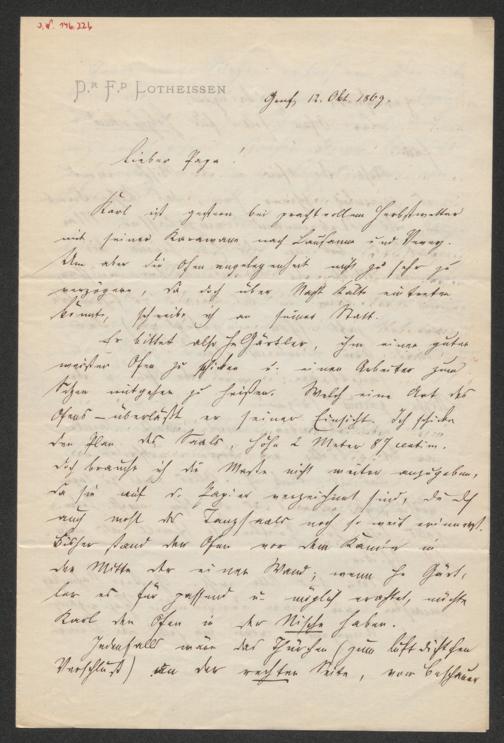 J.N. 146.226
Dr. Fd. Lotheissen
Genf, 12. Okt. 1869.
Lieber Papa!
Karl ist gestern bei prachtvollem Herbstwetter
mit seiner Karawane nach Lausanne und Vevey.
Um aber die Ofenangelegenheit nicht zu sehr zu
verzögern, da doch über Nacht Kälte eintreten
könnte, schreibe ich an seiner Statt.
Er bittet also H. Gärtler, ihm einen guten
weißen Ofen zu schicken u. einen Arbeiter zum
Setzen mitgehen zu heißen. Welch eine Art des
Ofens – überläßt er seiner Einsicht. Ich schicke
den Plan des Saals, Höhe 2 Meter 87 centim.
Doch brauche ich die Maße nicht weiter anzugeben,
da sie auf d. Papier verzeichnet sind, du dich
auch wohl des Tanzsaals noch so weit erinnerst.
Bisher stand der Ofen vor dem Kamin in
der Mitte der einen Wand; wenn H. Gärt-
ler es für passend u. möglich erachtet, möchte
Karl den Ofen in der Nische haben.
Jedenfalls wäre das Thürchen (zum luftdichten
Verschluß) an der rechten Seite, vom Beschauer